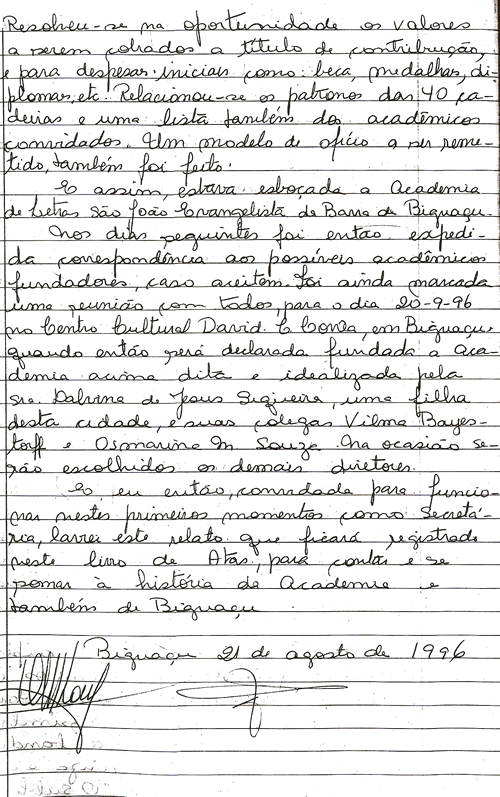 Resolveu-se na oportunidade os valores
a serem cobrados a título de contribuição,
e para despesas iniciais como beca, medalhas, di-
plomas, etc. Relacionou-se os patronos das 40 ca-
deiras e uma lista também dos acadêmicos
convidados. Um modelo de ofício a ser reme-
tido, também foi feito.
E assim, estava esboçada a Academia
de Letras São João Evangelista da Barra de Biguaçu.
Nos dias seguintes foi então expedi-
da correspondência aos possíveis acadêmicos
fundadores, caso aceitem. Foi ainda marcada
uma reunião com todos, para o dia 20-9-96
no Centro Cultural David C Correa, em Biguaçu
quando então será declarada fundada a aca-
demia acima dita e idealizada pela
sra. Dalvina de Jesus Siqueira, uma filha
desta cidade, e suas colegas Vilma Bayes-
torff e Osmarina M Souza. Na ocasião se-
rão escolhidos os demais diretores.
E, eu então, convidada para funcio-
nar nestes primeiros momentos como Secretá-
ria, lavrei este relato que ficará registrado
neste livro de Atas, para contar e se
somar à história da Academia e
também de Biguaçu.
Biguaçu 21 de agosto de 1996